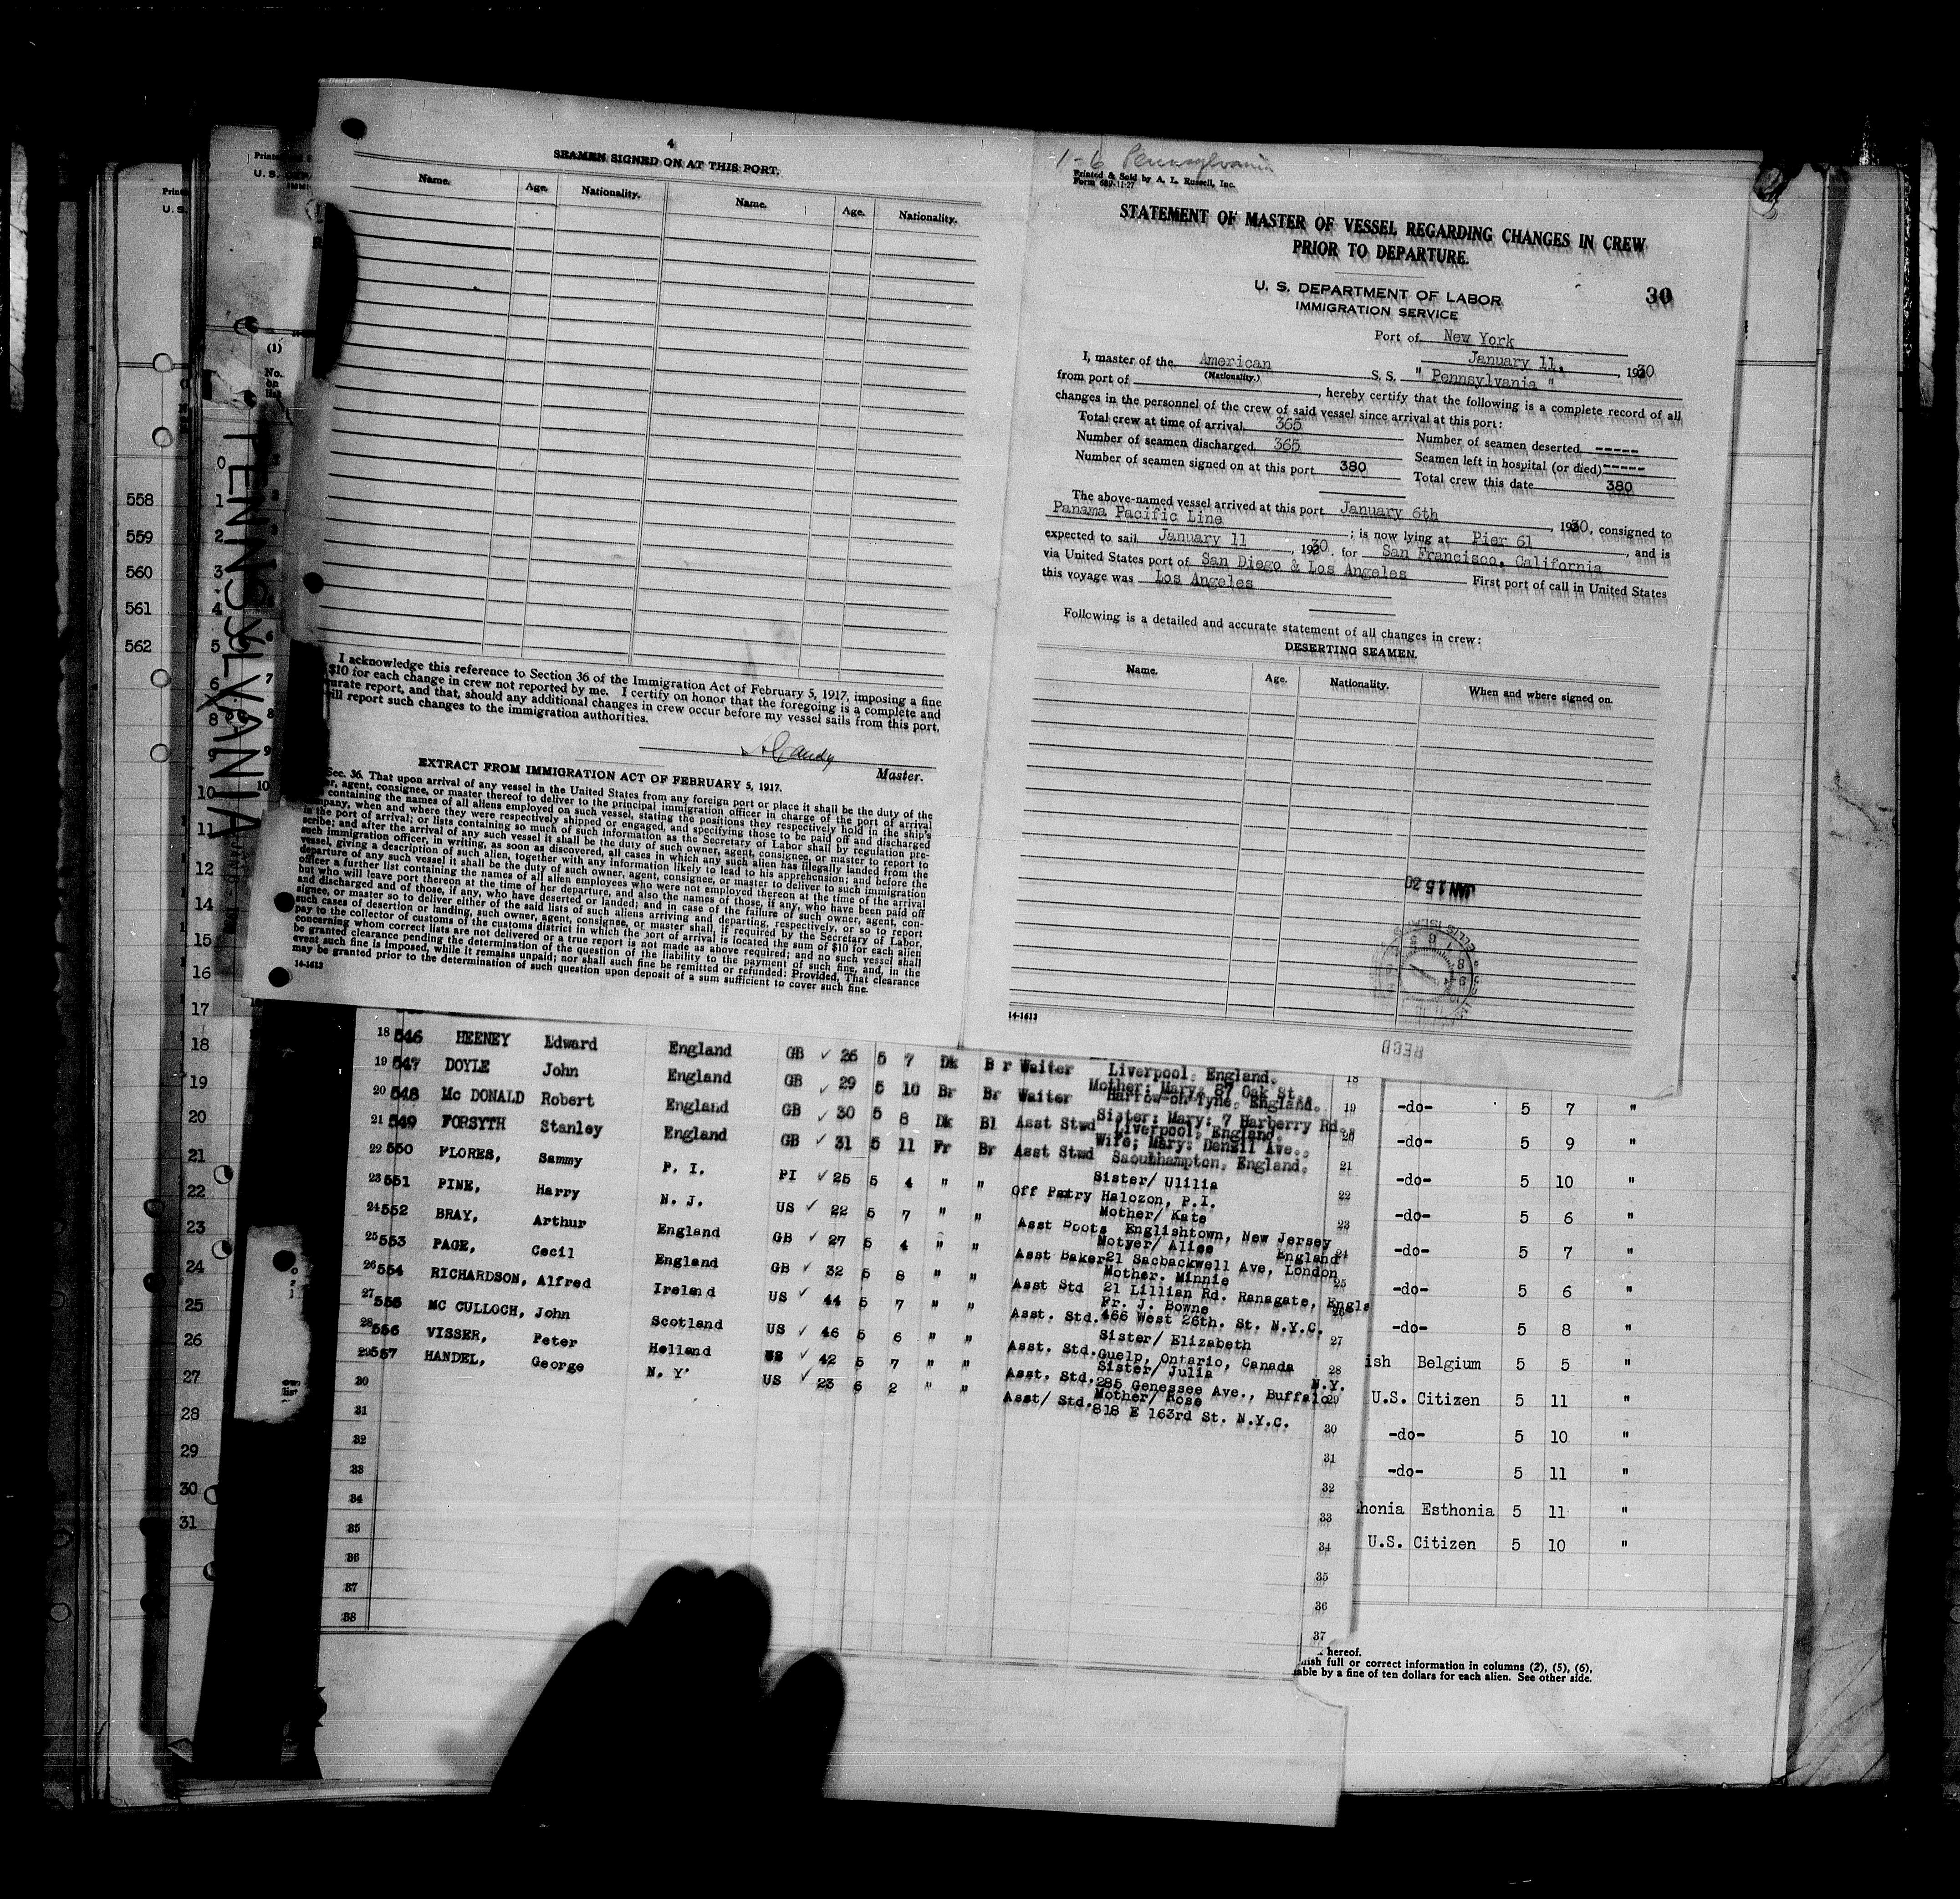 4
SEAMEN SIGNED ON AT THIS PORT.
Name. Age. Nationality. Name. Age. Nationality.
I acknowledge this reference to Section 36 of the Immigration Act of February 5, 1917, imposing a fine
$10 for each change in crew not reported by me. I certify on honor that the foregoing is a complete and
urate report, and that, should any additional changes in crew occur before my vessel sails from this port,
ill report such changes to the immigration authorities.
Master.
EXTRACT FROM IMMIGRATION ACT OF FEBRUARY 5, 1917.
Sec. 36. That upon arrival of any vessel in the United States from any foreign port or place it shall be the duty of the
er, agent, consignee, or master thereof to deliver to the principal immigration officer in charge of the port of arrival
containing the names of all aliens employed on such vessel, stating the positions they respectively hold in the ship's
mpany, when and where they were respectively shipped or engaged, and specifying those to be paid off and discharged
in the port of arrival; or lists containing so much of such information as the Secretary of Labor shall by regulation pre-
scribe; and after the arrival of any such vessel it shall be the duty of such owner, agent, consignee, or master to report to
such immigration officer, in writing, as soon as discovered, all cases in which any such alien has illegally landed from the
vessel, giving a description of such alien, together with any information likely to lead to his apprehension; and before the
departure of any such vessel it shall be the duty of such owner, agent, consignee, or master to deliver to such immigration
officer a further list containing the names of all alien employees who were not employed thereon at the time of the arrival
but who will leave port thereon at the time of her departure, and also the names of those, if any, who have been paid off
and discharged and of those, if any, who have deserted or landed; and in case of the failure of such owner, agent, con-
signee, or master so to deliver either of the said lists of such aliens arriving and departing, respectively, or so to report
such cases of desertion or landing, such owner, agent, consignee, or master shall, if required by the Secretary of Labor,
pay to the collector of customs of the customs district in which the port of arrival is located the sum of $10 for each alien
concerning whom correct lists are not delivered or a true report is not made as above required; and no such vessel shall
be granted clearance pending the determination of the question of the liability to the payment of such fine, and, in the
event such fine is imposed, while it remains unpaid; nor shall such fine be remitted or refunded: Provided, That clearance
may be granted prior to the determination of such question upon deposit of a sum sufficient to cover such fine.
14-1613
1-6 Pennsylvania
Printed & Sold by A. L. Russell, Inc.
Form 689-11-27
STATEMENT OF MASTER OF VESSEL REGARDING CHANGES IN CREW
PRIOR TO DEPARTURE.
U. S. DEPARTMENT OF LABOR
IMMIGRATION SERVICE
30
Port of New York
January 11, 1930
I, master of the American S. S. " Pennsylvania "
(Nationality.)
from port of , hereby certify that the following is a complete record of all
changes in the personnel of the crew of said vessel since arrival at this port:
Total crew at time of arrival 365 Number of seamen deserted -----
Number of seamen discharged 365 Seamen left in hospital (or died) -----
Number of seamen signed on at this port 380 Total crew this date 380
The above-named vessel arrived at this port January 6th , 1930, consigned to
Panama Pacific Line ; is now lying at Pier 61 , and is
expected to sail January 11 , 1930, for San Francisco, California
via United States port of San Diego & Los Angeles First port of call in United States
this voyage was Los Angeles
Following is a detailed and accurate statement of all changes in crew:
DESERTING SEAMEN.
Name. Age. Nationality. When and where signed on.
JAN 15 30
RECD
14-1613
PENNSYLVANIA
558
559
560
561
562
18 546 HEENEY Edward England GB ✓ 26 5 7 Dk Br Waiter Liverpool, England.
19 547 DOYLE John England GB ✓ 29 5 10 Br Br Waiter Mother: Mary: 87 Oak St., Harrow-on-Tyne, England.
20 548 Mc DONALD Robert England GB ✓ 30 5 8 Dk Bl Asst Stwd Sister: Mary: 7 Harberry Rd Liverpool, England.
21 549 FORSYTH Stanley England GB ✓ 31 5 11 Fr Br Asst Stwd Wife: Mary: Denzil Ave., Saouthampton, England.
22 550 FLORES, Sammy P. I. PI ✓ 25 5 4 " " Off Pantry Sister/ Ulilia Halozon, P.I.
23 551 PINE, Harry N. J. US ✓ 22 5 7 " " Asst Boots Mother/ Kate Englishtown, New Jersey
24 552 BRAY, Arthur England GB ✓ 27 5 4 " " Asst Baker Motyer/ Alice England 21 Sacbackwell Ave, London
25 553 PAGE, Cecil England GB ✓ 32 5 8 " " Asst Std Mother. Minnie 21 Lillian Rd. Ramsgate, Engla
26 554 RICHARDSON, Alfred Ireland US ✓ 44 5 7 " " Asst. Std. Fr. J. Bowne 466 West 26th. St. N.Y.C.
27 555 MC CULLOCH, John Scotland US ✓ 46 5 6 " " Asst. Std. Sister/ Elizabeth Guelp, Ontario, Canada
28 556 VISSER, Peter Holland US ✓ 42 5 7 " " Asst. Std. Sister/ Julia N.Y. 285 Genessee Ave., Buffalo
29 557 HANDEL, George N. Y US ✓ 23 6 2 " " Asst/ Std. Mother/ Rose 818 E 163rd St. N.Y.C.
30
31
32
33
34
35
36
37
38
19 -do- 5 7 "
20 -do- 5 9 "
21 -do- 5 10 "
22 -do- 5 6 "
23 -do- 5 7 "
24 -do- 5 6 "
25 -do- 5 8 "
ish Belgium 5 5 "
U.S. Citizen 5 11 "
-do- 5 10 "
-do- 5 11 "
honia Esthonia 5 11 "
U.S. Citizen 5 10 "
hereof.
nish full or correct information in columns (2), (5), (6),
able by a fine of ten dollars for each alien. See other side.